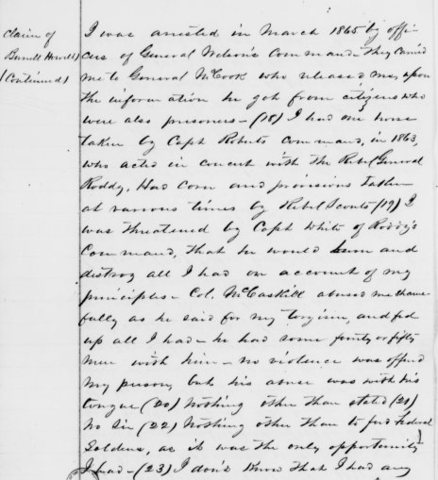 Claim of
Burrell Howell
(Continued)
I was arrested in March 1865 by offi-
cers of General Wilson's Command - They carried
me to General McCook who released me, upon
the information he got from citizens who
were also prisoners - (18) I had one horse
taken by Capt Roberts command, in 1863,
who acted in concert with the Rebel General
Roddy, Had corn and provisions taken
at various times by Rebel Scouts (19) I
was threatened by Capt White of Roddy's
Command, that he would burn and
destroy all I had on account of my
principles - Col. McCaskill abused me shame-
fully as he said for my toryism, and fed
up all I had - he had some forty or fifty
men with him - no violence was offered
my person, but his abuse was with his
tongue (20) Nothing other than stated (21)
No Sir (22) Nothing other than to feed Federal
Soldiers, as it was the only opportunity
I had - (23) I don't know that I had any